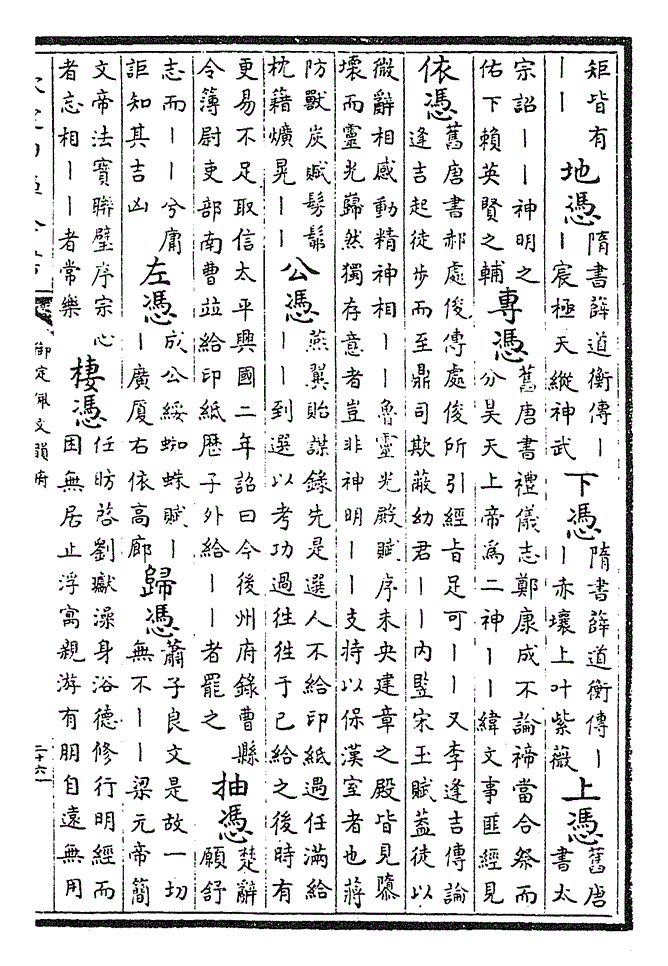 矩皆有丨丨地憑隋書薛道衡傳丨丨宸極天縱神武下憑隋書薛道衡傳丨丨赤壤上叶紫薇上憑舊唐書太
宗詔丨丨神明之佑下賴英賢之輔專憑舊唐書禮儀志鄭康成不論禘當合祭而分昊天上帝為二神丨丨緯文事匪經見
依憑舊唐書郝處俊傳處俊所引經旨足可丨丨又李逢吉傳論逢吉起徒步而至鼎司欺蔽幼君丨丨内豎宋玉賦蓋徒以
微辭相感動精神相丨丨魯靈光殿賦序未央建章之殿皆見隳壞而靈光巋然獨存意者豈非神明丨丨支持以保漢室者也蔣
防獸炭賦髣髴枕籍爌晃丨丨公憑燕翼貽謀錄先是選人不給印紙遇任滿給丨丨到選以考功過往往于已給之後時有
更易不足取信太平興國二年詔曰今後州府錄曹縣令簿尉吏部南曹並給印紙歷子外給丨丨者罷之抽憑楚辭願舒
志而丨丨兮庸詎知其吉凶左憑成公綏蜘蛛賦丨丨廣厦右依高廊歸憑蕭子良文是故一切無不丨丨梁元帝簡
文帝法寶聯璧序宗心者忘相丨丨者常樂棲憑任昉啓劉瓛澡身浴德修行明經而困無居止浮寓親游有朋自遠無用
御定佩文韻府
二十六